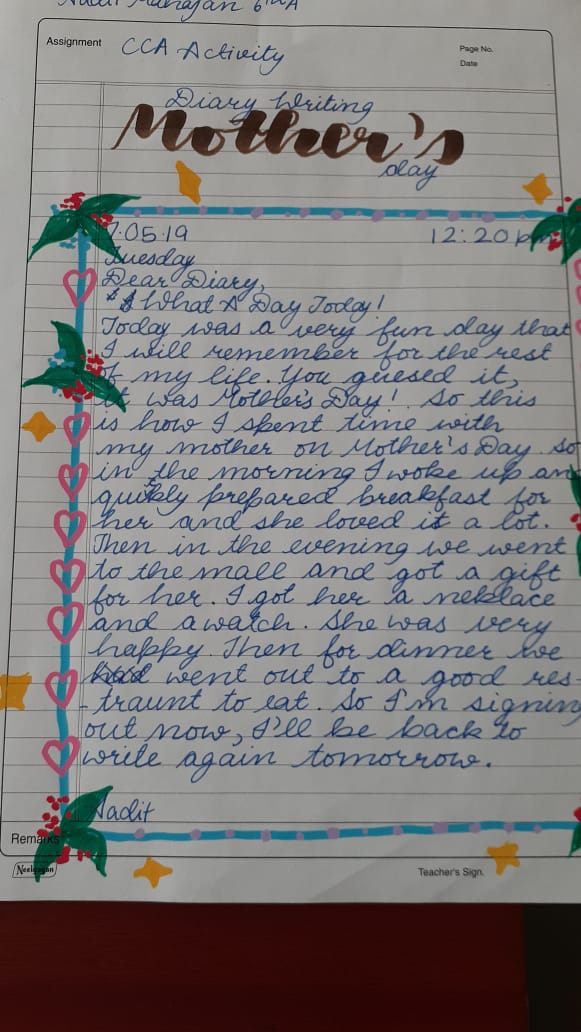 Mahajan 6th A
Assignment CCA Activity
Page No.
Date
Diary Writing
Mother's
day
7.05.19 12:20 pm
Tuesday
Dear Diary,
What A Day Today!
Today was a very fun day that
I will remember for the rest
of my life. You guesed it,
it was Mother's Day! So this
is how I spent time with
my mother on Mother's Day. So
in the morning I woke up an
quikly prepared breakfast for
her and she loved it a lot.
Then in the evening we went
to the mall and got a gift
for her. I got her a neklace
and a watch. She was very
happy. Then for dinner we
went out to a good res-
-traunt to eat. So I'm signing
out now, I'll be back to
write again tomorrow.
Aadit
Remarks
Neelgagan
Teacher's Sign.